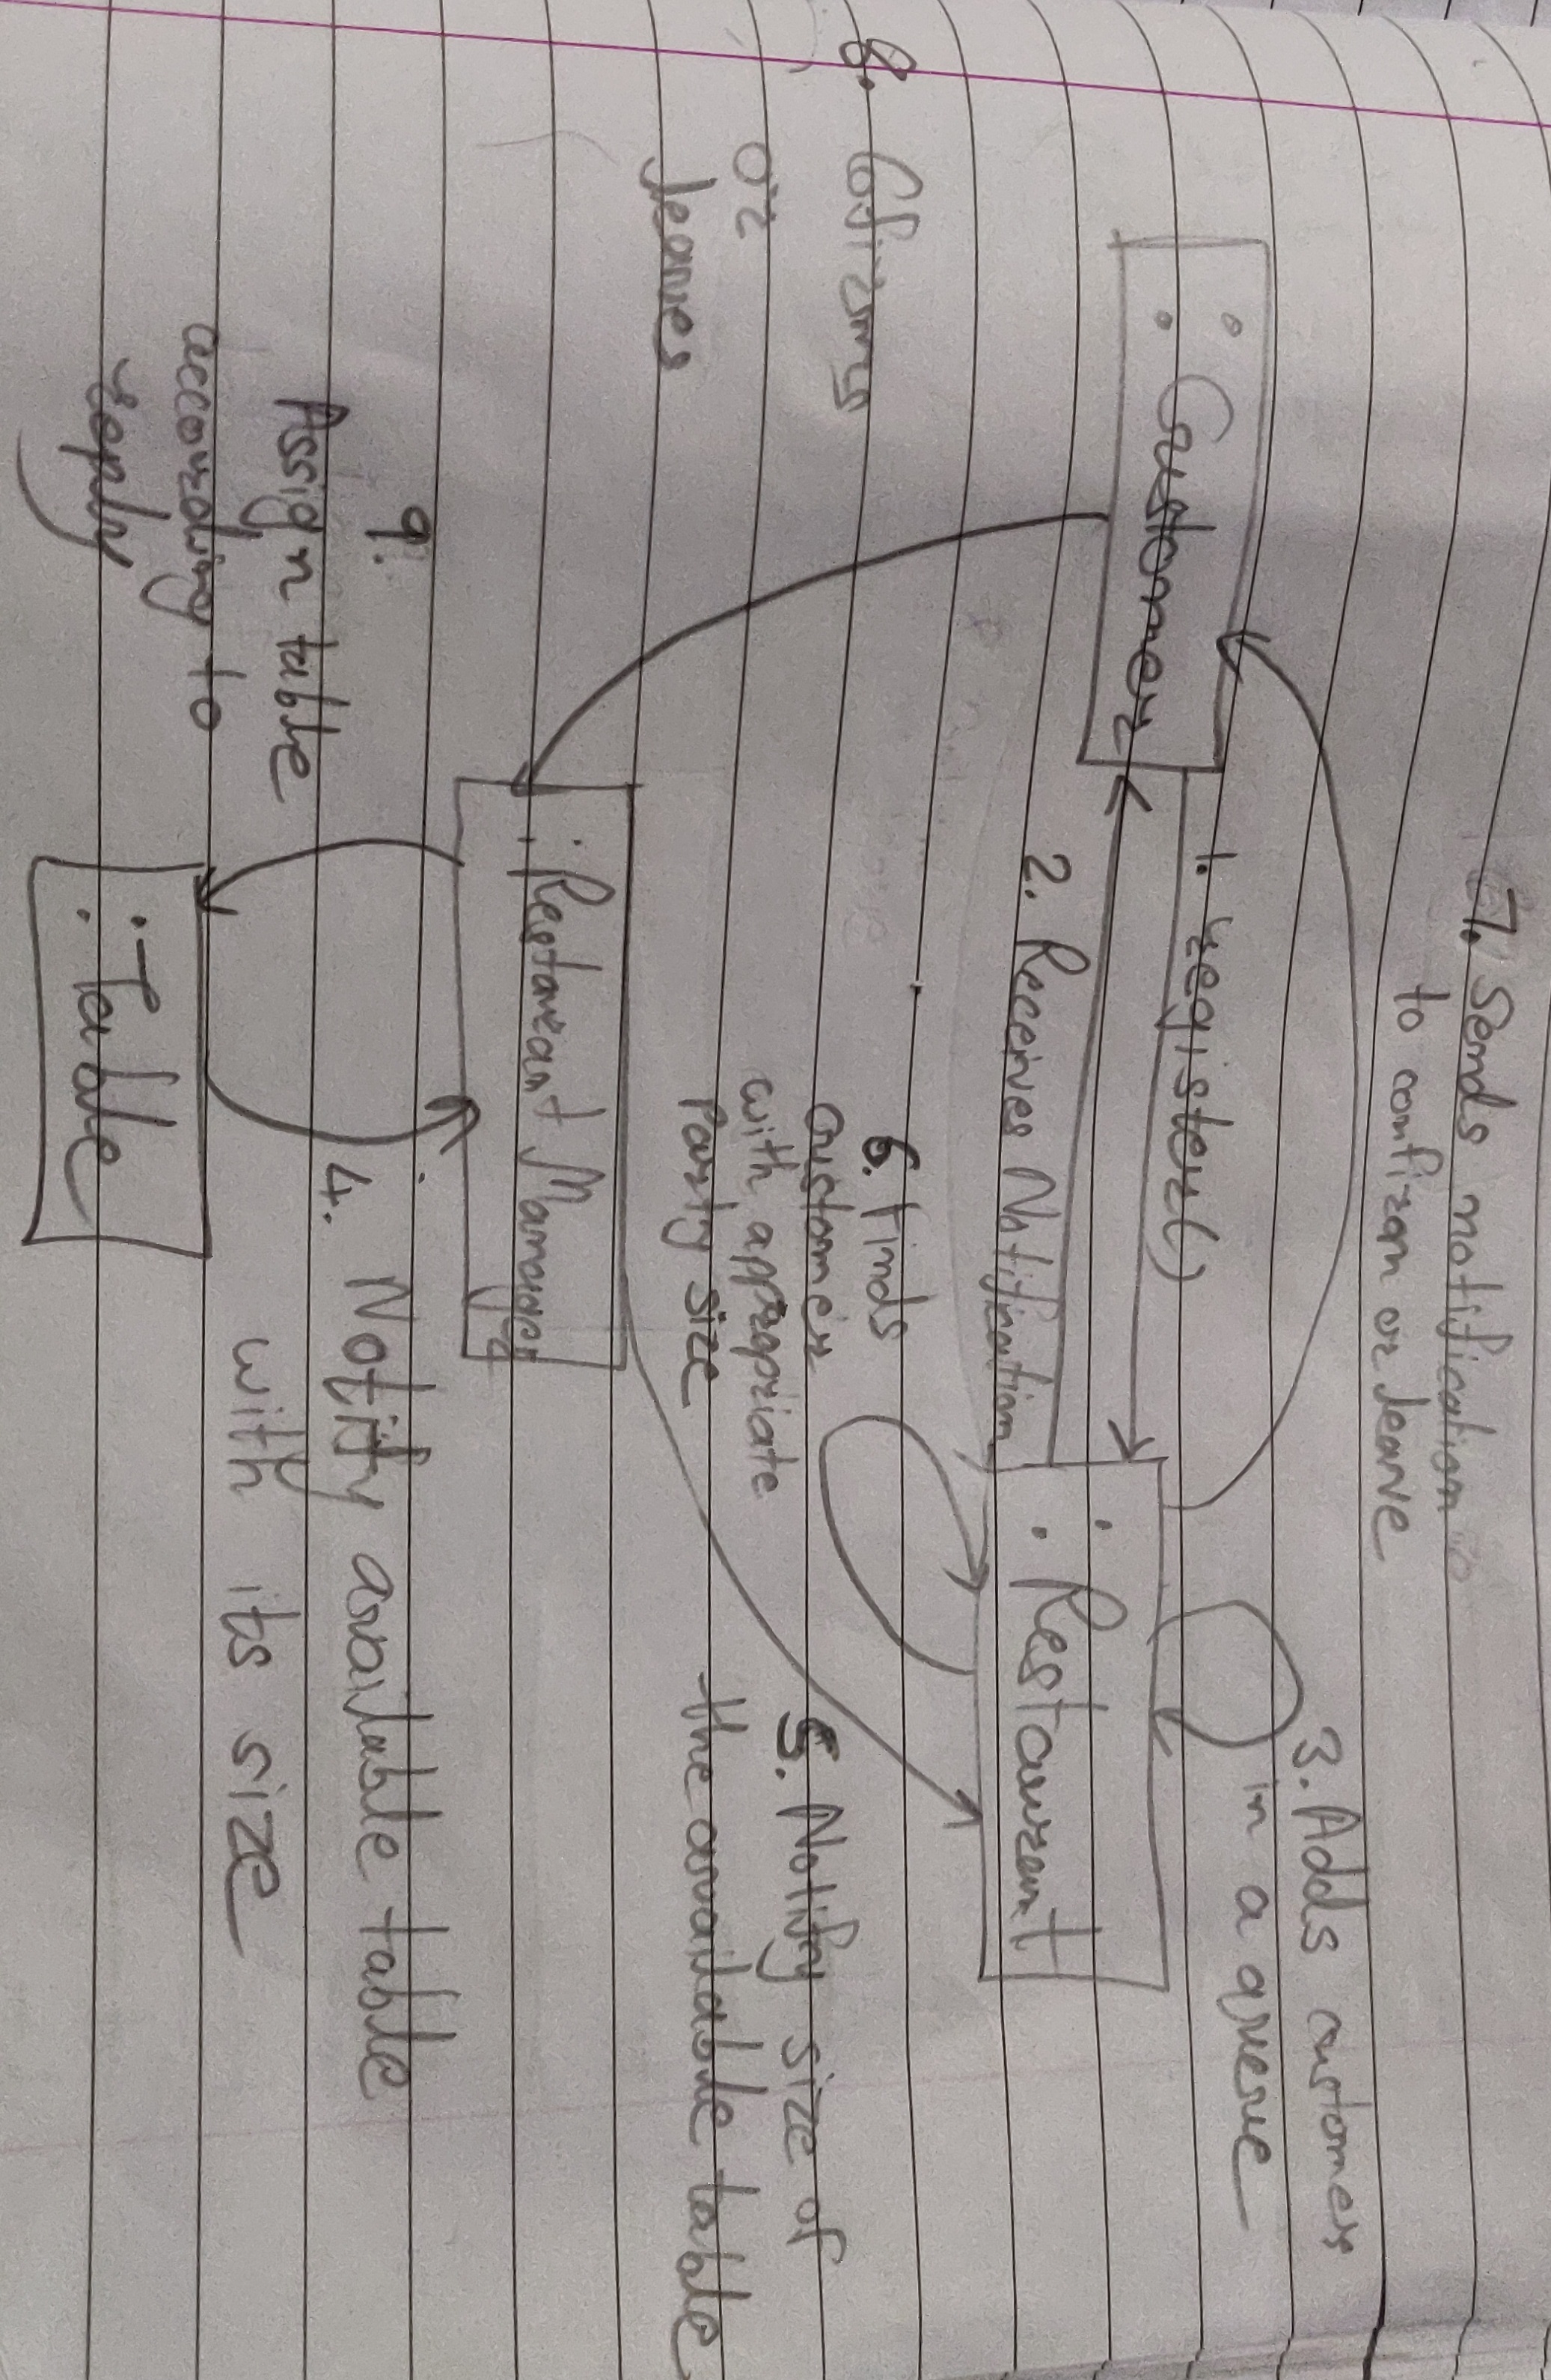 7. Sends notification
to confirm or leave
3. Adds customers
in a queue
: Customer
1. register()
2. Receives Notification
: Restaurant
8. Cfirms
or
leaves
6. Finds
customer
with appropriate
Party size
5. Notify size of
the available table
: Restaurant Manager
9.
Assign table
according to
reply
4. Notify available table
with its size
: Table